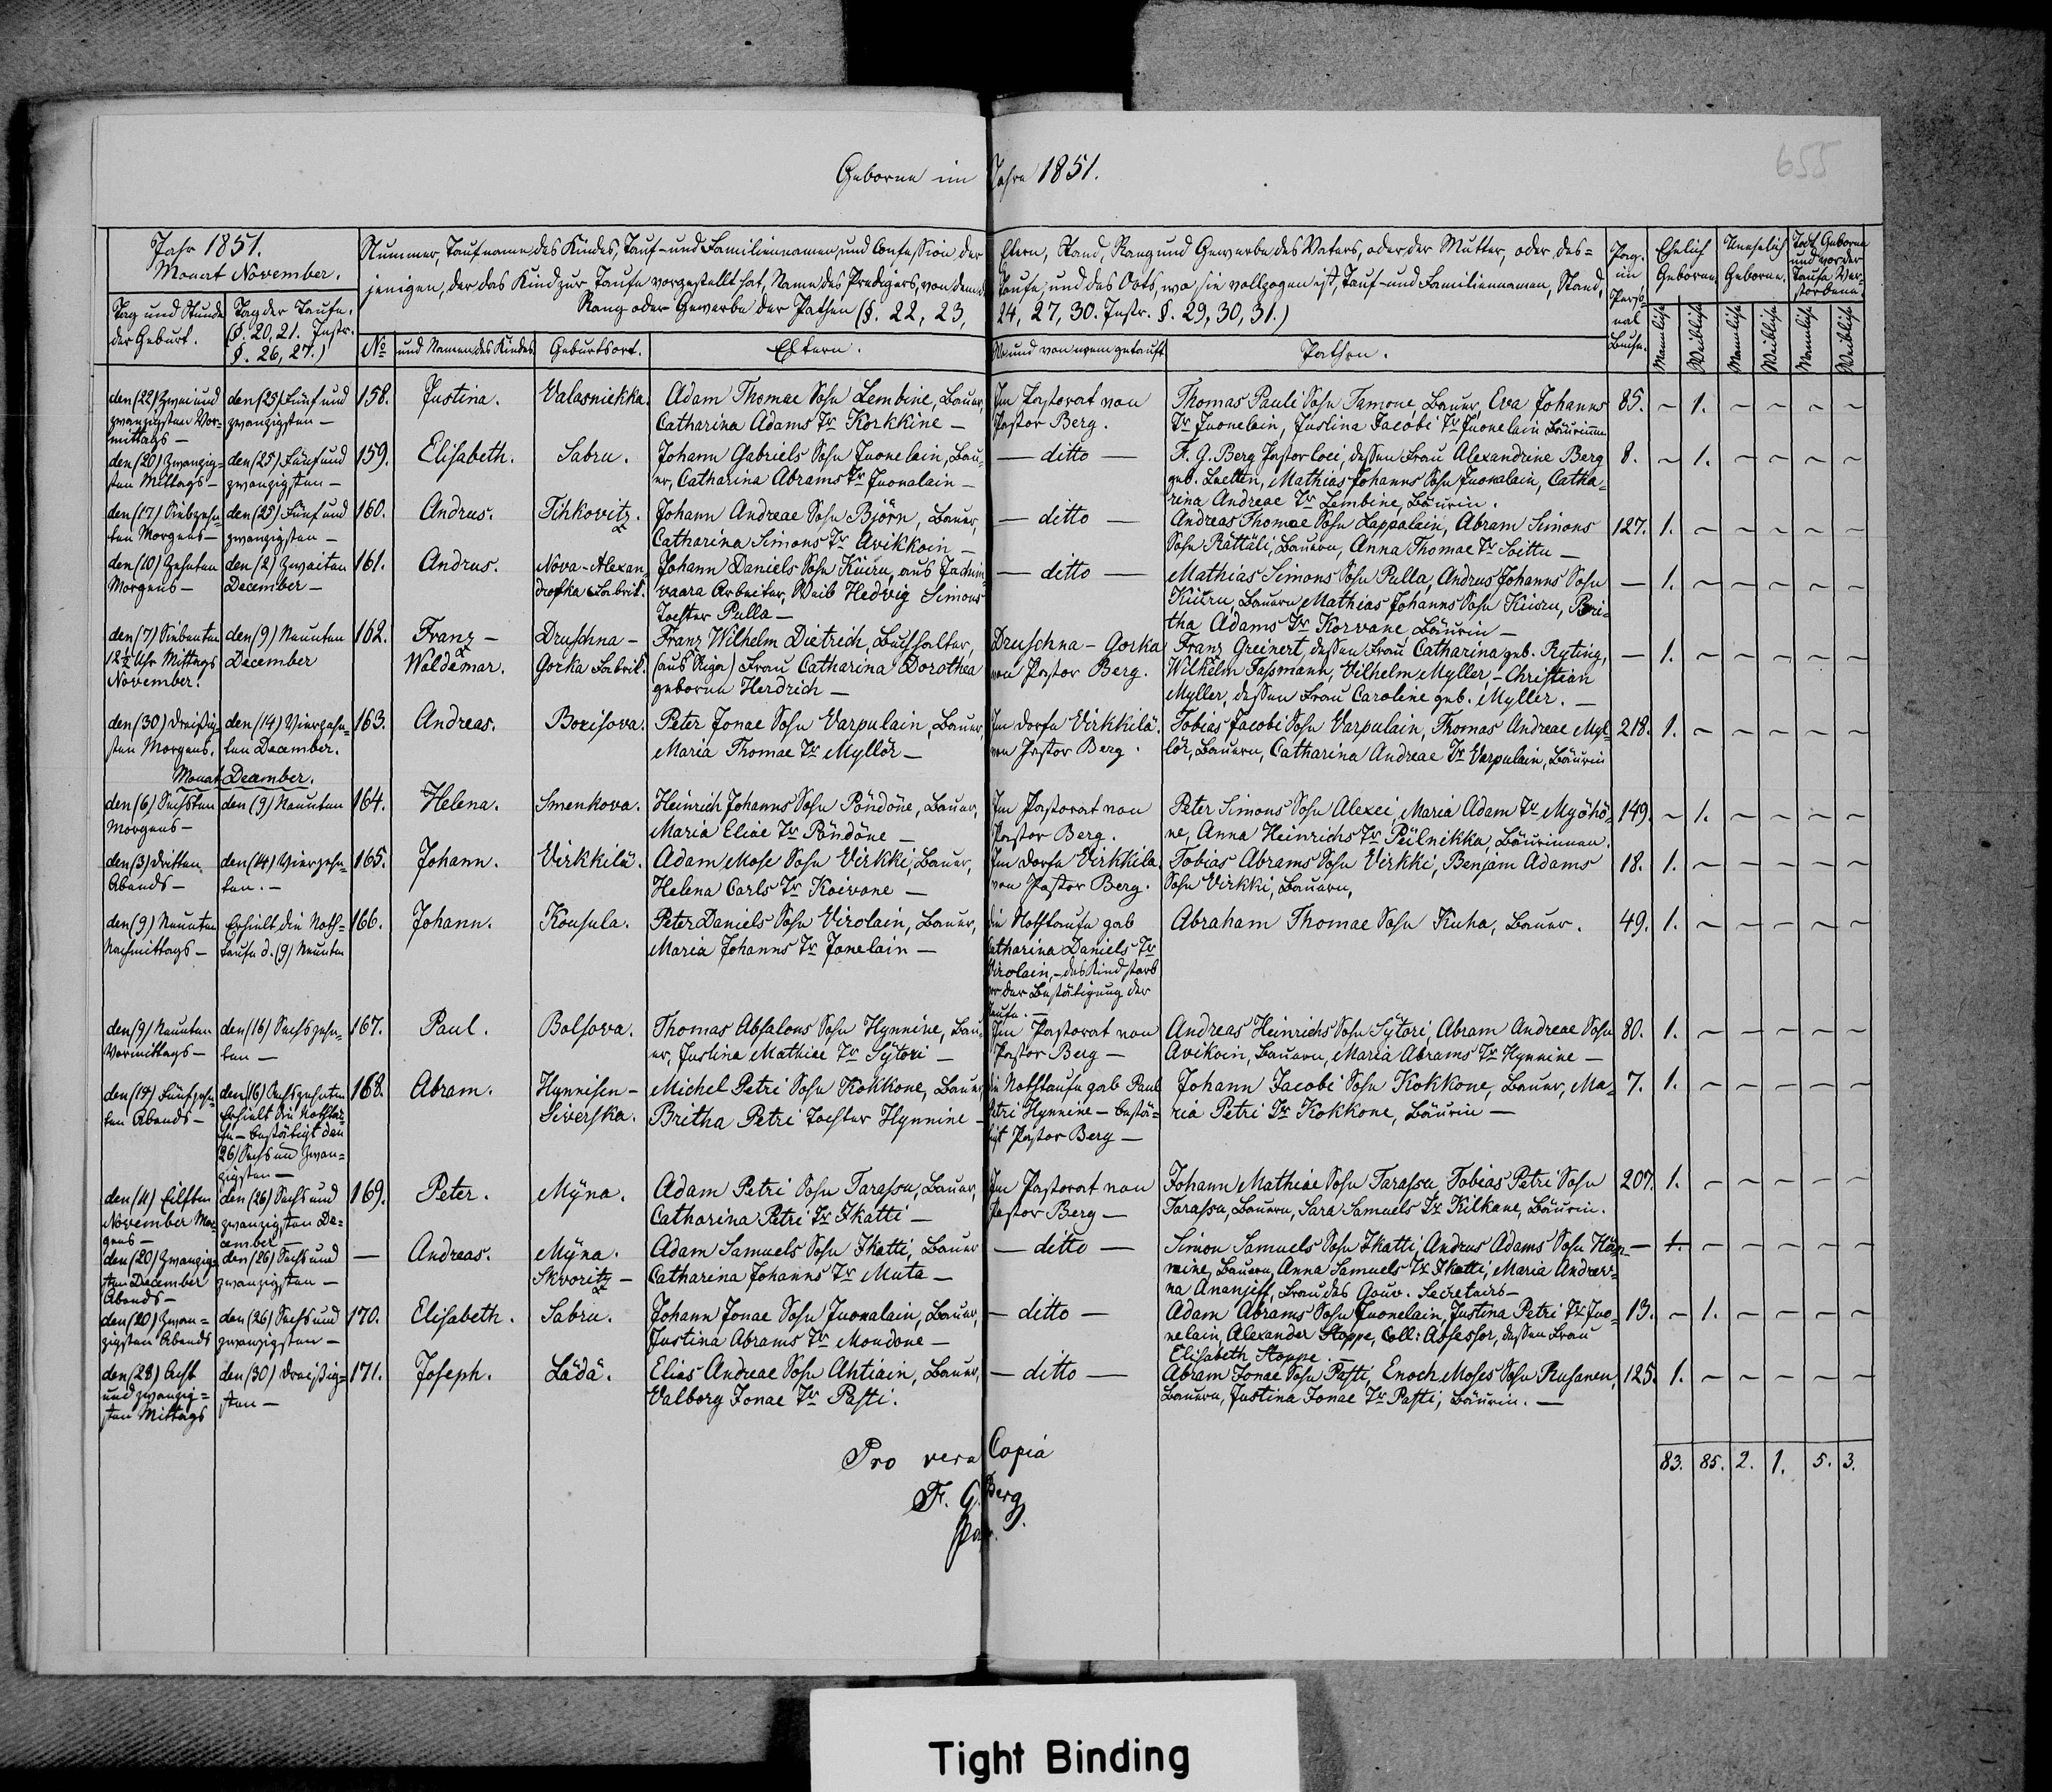 655
Geborne im Jahre 1851.
Jahr 1851.
Monat November.
Tag und Stunde der Geburt.
Tag der Taufe. (§. 20, 21. Instr. §. 26, 27.)
Nummer, Taufname des Kindes, Tauf- und Familiennamen, und Confession der Eltern, Stand, Rang und Gewerbe des Vaters, oder der Mutter, oder des=
jenigen, der das Kind zur Taufe vorgestellt hat, Name des Predigers, von dem d. Taufe, und des Orts, wo sie vollzogen ist, Tauf- und Familiennamen, Stand,
Rang oder Gewerbe der Pathen (§. 22, 23, 24, 27, 30. Instr. §. 29, 30, 31.)
No und Namen des Kindes Geburtsort. Eltern. Wo und von wem getauft Pathen.
Pag. im Perso=nal Buche.
Ehelich Geborne. Unehelich Geborne. Todt Geborne und vor der Taufe Ver=storbene.
Mannliche Weibliche Mannliche Weibliche Mannliche Weibliche
den (22) Zwei und den (25) Fünf und 158. Justina. Valasniekka. Adam Thomae Sohn Lembine, Bauer, Im Pastorat von Thomas Pauli Sohn Tamone, Bauer, Eva Johanns 85. ~ 1. ~ ~ ~ ~
zwanzigsten Vor= zwanzigsten — Catharina Adams Tr Korkkine — Pastor Berg. Tr Juonelain, Justina Jacobi Tr Juonelain Bäurinnen
mittags —
den (20) Zwanzig= den (25) Fünf und 159. Elisabeth. Sabru. Johann Gabriels Sohn Juonelain, Bau= — ditto — F. G. Berg Pastor loci, dessen Frau Alexandrine Berg 8. ~ 1. ~ ~ ~ ~
sten Mittags — zwanzigsten — er, Catharina Abrams Tr Juonalain — geb. Mathias Johanns Sohn Juonalain, Catha=
rina Andreae Tr Lembine, Bäurin.
den (17) Siebzehn= den (25) Fünf und 160. Andrus. Tihkovitz. Johann Andreae Sohn Björn, Bauer, — ditto — Andreas Thomae Sohn Lappalain, Abram Simons 127. 1. ~ ~ ~ ~ ~
ten Morgens — zwanzigsten — Catharina Simons Tr Avikkoin — Sohn Rättäli, Bauern, Anna Thomae Tr Soittu —
den (10) Zehnten den (2) Zweiten 161. Andrus. Nova-Alexan Johann Daniels Sohn Kiuru, aus — ditto — Mathias Simons Sohn Pulla, Andrus Johanns Sohn — 1. ~ ~ ~ ~ ~
Morgens — December — drofka Fabrik. vaara Arbeiter, Weib Hedvig Simons Kiuru, Bauern, Mathias Johanns Sohn Kiuru, Bri=
Tochter Pulla — tha Adams Tr Korvane, Bäurin —
den (7) Siebenten den (9) Neunten 162. Franz — Druschna — Franz Wilhelm Dietrich, Buchhalter, Druschna-Gorka Franz Greinert, dessen Frau Catharina geb. Ryting, — 1. ~ ~ ~ ~ ~
12½ Uhr Mittags December Woldemar. Gorka Fabrik. (aus Riga) Frau Catharina Dorothea von Pastor Berg. Wilhelm Fassmann, Vilhelm Myller, — Christian
November. geborne Herdrich — Myller, dessen Frau Caroline geb. Myller. —
den (30) Dreißig= den (14) Vierzehn= 163. Andreas. Borisova. Peter Jonae Sohn Varpulain, Bauer, Im Dorfe Virkkilä. Tobias Jacobi Sohn Varpulain, Thomas Andreae Myl= 218. 1. ~ ~ ~ ~ ~
sten Morgens. ten December. Maria Thomae Tr Myllör — von Pastor Berg. lör, Bauern, Catharina Andreae Tr Varpulain, Bäurin
Monat December.
den (6) Sechsten den (9) Neunten 164. Helena. Smenkova. Heinrich Johanns Sohn Pöndöne, Bauer, Im Pastorat von Peter Simons Sohn Alexei, Maria Adam Tr Myöhö= 149. ~ 1. ~ ~ ~ ~
Morgens — Maria Eliae Tr Pöndöne — Pastor Berg. ne, Anna Heinrichs Tr Peilnikka, Bäurinnen.
den (3) Dritten den (14) Vierzehn= 165. Johann. Virkkilä. Adam Mose Sohn Virkki, Bauer, Im Dorfe Virkkila Tobias Abrams Sohn Virkki, Benjam Adams 18. 1. ~ ~ ~ ~ ~
Abends — ten. — Helena Carls Tr Koivone — von Pastor Berg. Sohn Virkki, Bauern,
den (9) Neunten Erhielt die Noth= 166. Johann. Kousula. Peter Daniels Sohn Virolain, Bauer, die Nothtaufe gab Abraham Thomae Sohn Kuha, Bauer. 49. 1. ~ ~ ~ ~ ~
Nachmittags — taufe d. (9) Neunten Maria Johanns Tr Jonelain — Catharina Daniels Tr
Virolain, — das Kind starb
vor der Bestätigung der
Taufe. —
den (9) Neunten den (16) Sechszehn= 167. Paul. Bolsova. Thomas Absalons Sohn Hynnine, Bau= Im Pastorat von Andreas Heinrichs Sohn Sÿtori, Abram Andreae Sohn 80. 1. ~ ~ ~ ~ ~
Vormittags — ten — er, Justina Mathiae Tr Sÿtori — Pastor Berg — Avikoin, Bauern, Maria Abrams Tr Hynnine —
den (14) Fünfzehn= den (16) Sechszehnten 168. Abram. Hynnisen — Michel Petri Sohn Kokkone, Bauer, die Nothtaufe gab Paul Johann Jacobi Sohn Kokkone, Bauer, Ma= 7. 1. ~ ~ ~ ~ ~
ten Abends — Erhielt die Nothtau= Siverska. Britha Petri Tochter Hynnine — Petri Hynnine — bestä= ria Petri Tr Kokkone, Bäurin —
fe — bestätigt den tigt Pastor Berg —
(26) Sechs un zwan=
zigsten —
den (11) Eilften den (26) Sechs und 169. Peter. Mÿna. Adam Petri Sohn Tarassu, Bauer, Im Pastorat von Johann Mathiae Sohn Tarassu Tobias Petri Sohn 207. 1. ~ ~ ~ ~ ~
November Mor= zwanzigsten De= Catharina Petri Tr Ikatti — Pastor Berg — Tarassu, Bauern, Sara Samuels Tr Kilkane, Bäurin.
gens — cember —
den (20) Zwanzig= den (26) Sechs und — Andreas. Mÿna. Adam Samuels Sohn Ikatti, Bauer — ditto — Simon Samuels Sohn Ikatti, Andrus Adams Sohn — 1. ~ ~ ~ ~ ~
sten December zwanzigsten — Skvoritz — Catharina Johanns Tr Muta — mine, Bauern, Anna Samuels Tr Ikatti, Maria Andrew=
Abends — na Ananjeff, Frau des Gouv. Secretairs —
den (20) Zwan= den (26) Sechs und 170. Elisabeth. Sabru. Johann Jonae Sohn Juonalain, Bauer, — ditto — Adam Abrams Sohn Juonelain, Justina Petri Tr Juo= 13. ~ 1. ~ ~ ~ ~
zigsten Abends zwanzigsten — Justina Abrams Tr Moudone — nelain, Alexander Stoppe, Coll: Assessor, dessen Frau
Elisabeth Stoppe. —
den (28) Acht den (30) Dreißig= 171. Joseph. Lädä. Elias Andreae Sohn Ahtiain, Bauer, — ditto — Abram Jonae Sohn Pasti, Enoch Moses Sohn Rusanen, 125. 1. ~ ~ ~ ~ ~
und zwanzig= sten — Valborg Jonae Tr Pasti. Bauern, Justina Jonae Tr Pasti, Bäurin. —
sten Mittags
83. 85. 2. 1. 5. 3.
Pro vera Copia
F. G. Berg
Tight Binding